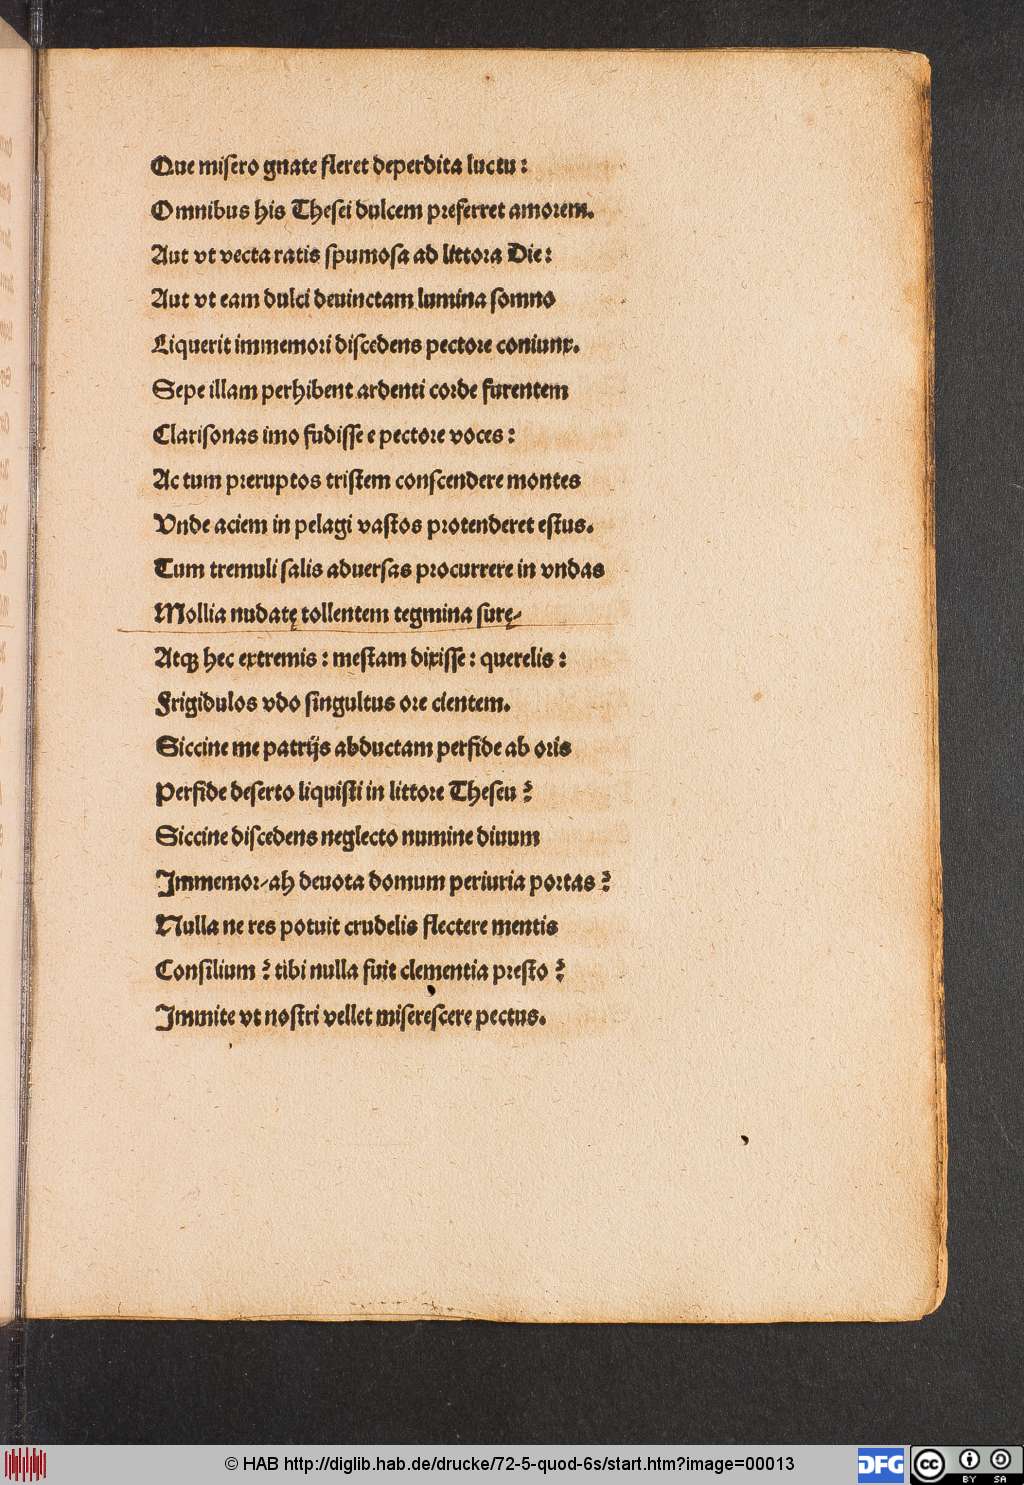 Que misero gnate fleret deperdita luctu:
Omnibus his Thesei dulcem preferret amorem.
Aut vt vecta ratis spumosa ad littora Die:
Aut vt eam dulci deuinctam lumina somno
Liquerit immemori discedens pectore coniunx.
Sepe illam perhibent ardenti corde furentem
Clarisonas imo fudisse e pectore voces:
Ac tum preruptos tristem conscendere montes
Vnde aciem in pelagi vastos protenderet estus.
Tum tremuli salis aduersas procurrere in vndas
Mollia nudatę tollentem tegmina surę/
Atqꝫ hec extremis: mestam dixisse: querelis:
Frigidulos vdo singultus ore cientem.
Siccine me patrijs abductam perfide ab oris
Perfide deserto liquisti in littore Theseu?
Siccine discedens neglecto numine diuum
Immemor/ah deuota domum periuria portas?
Nulla ne res potuit crudelis flectere mentis
Consilium? tibi nulla fuit clementia presto?
Immite vt nostri vellet miserescere pectus.
© HAB http://diglib.hab.de/drucke/72-5-quod-6s/start.htm?image=00013
DFG
cc
BY SA